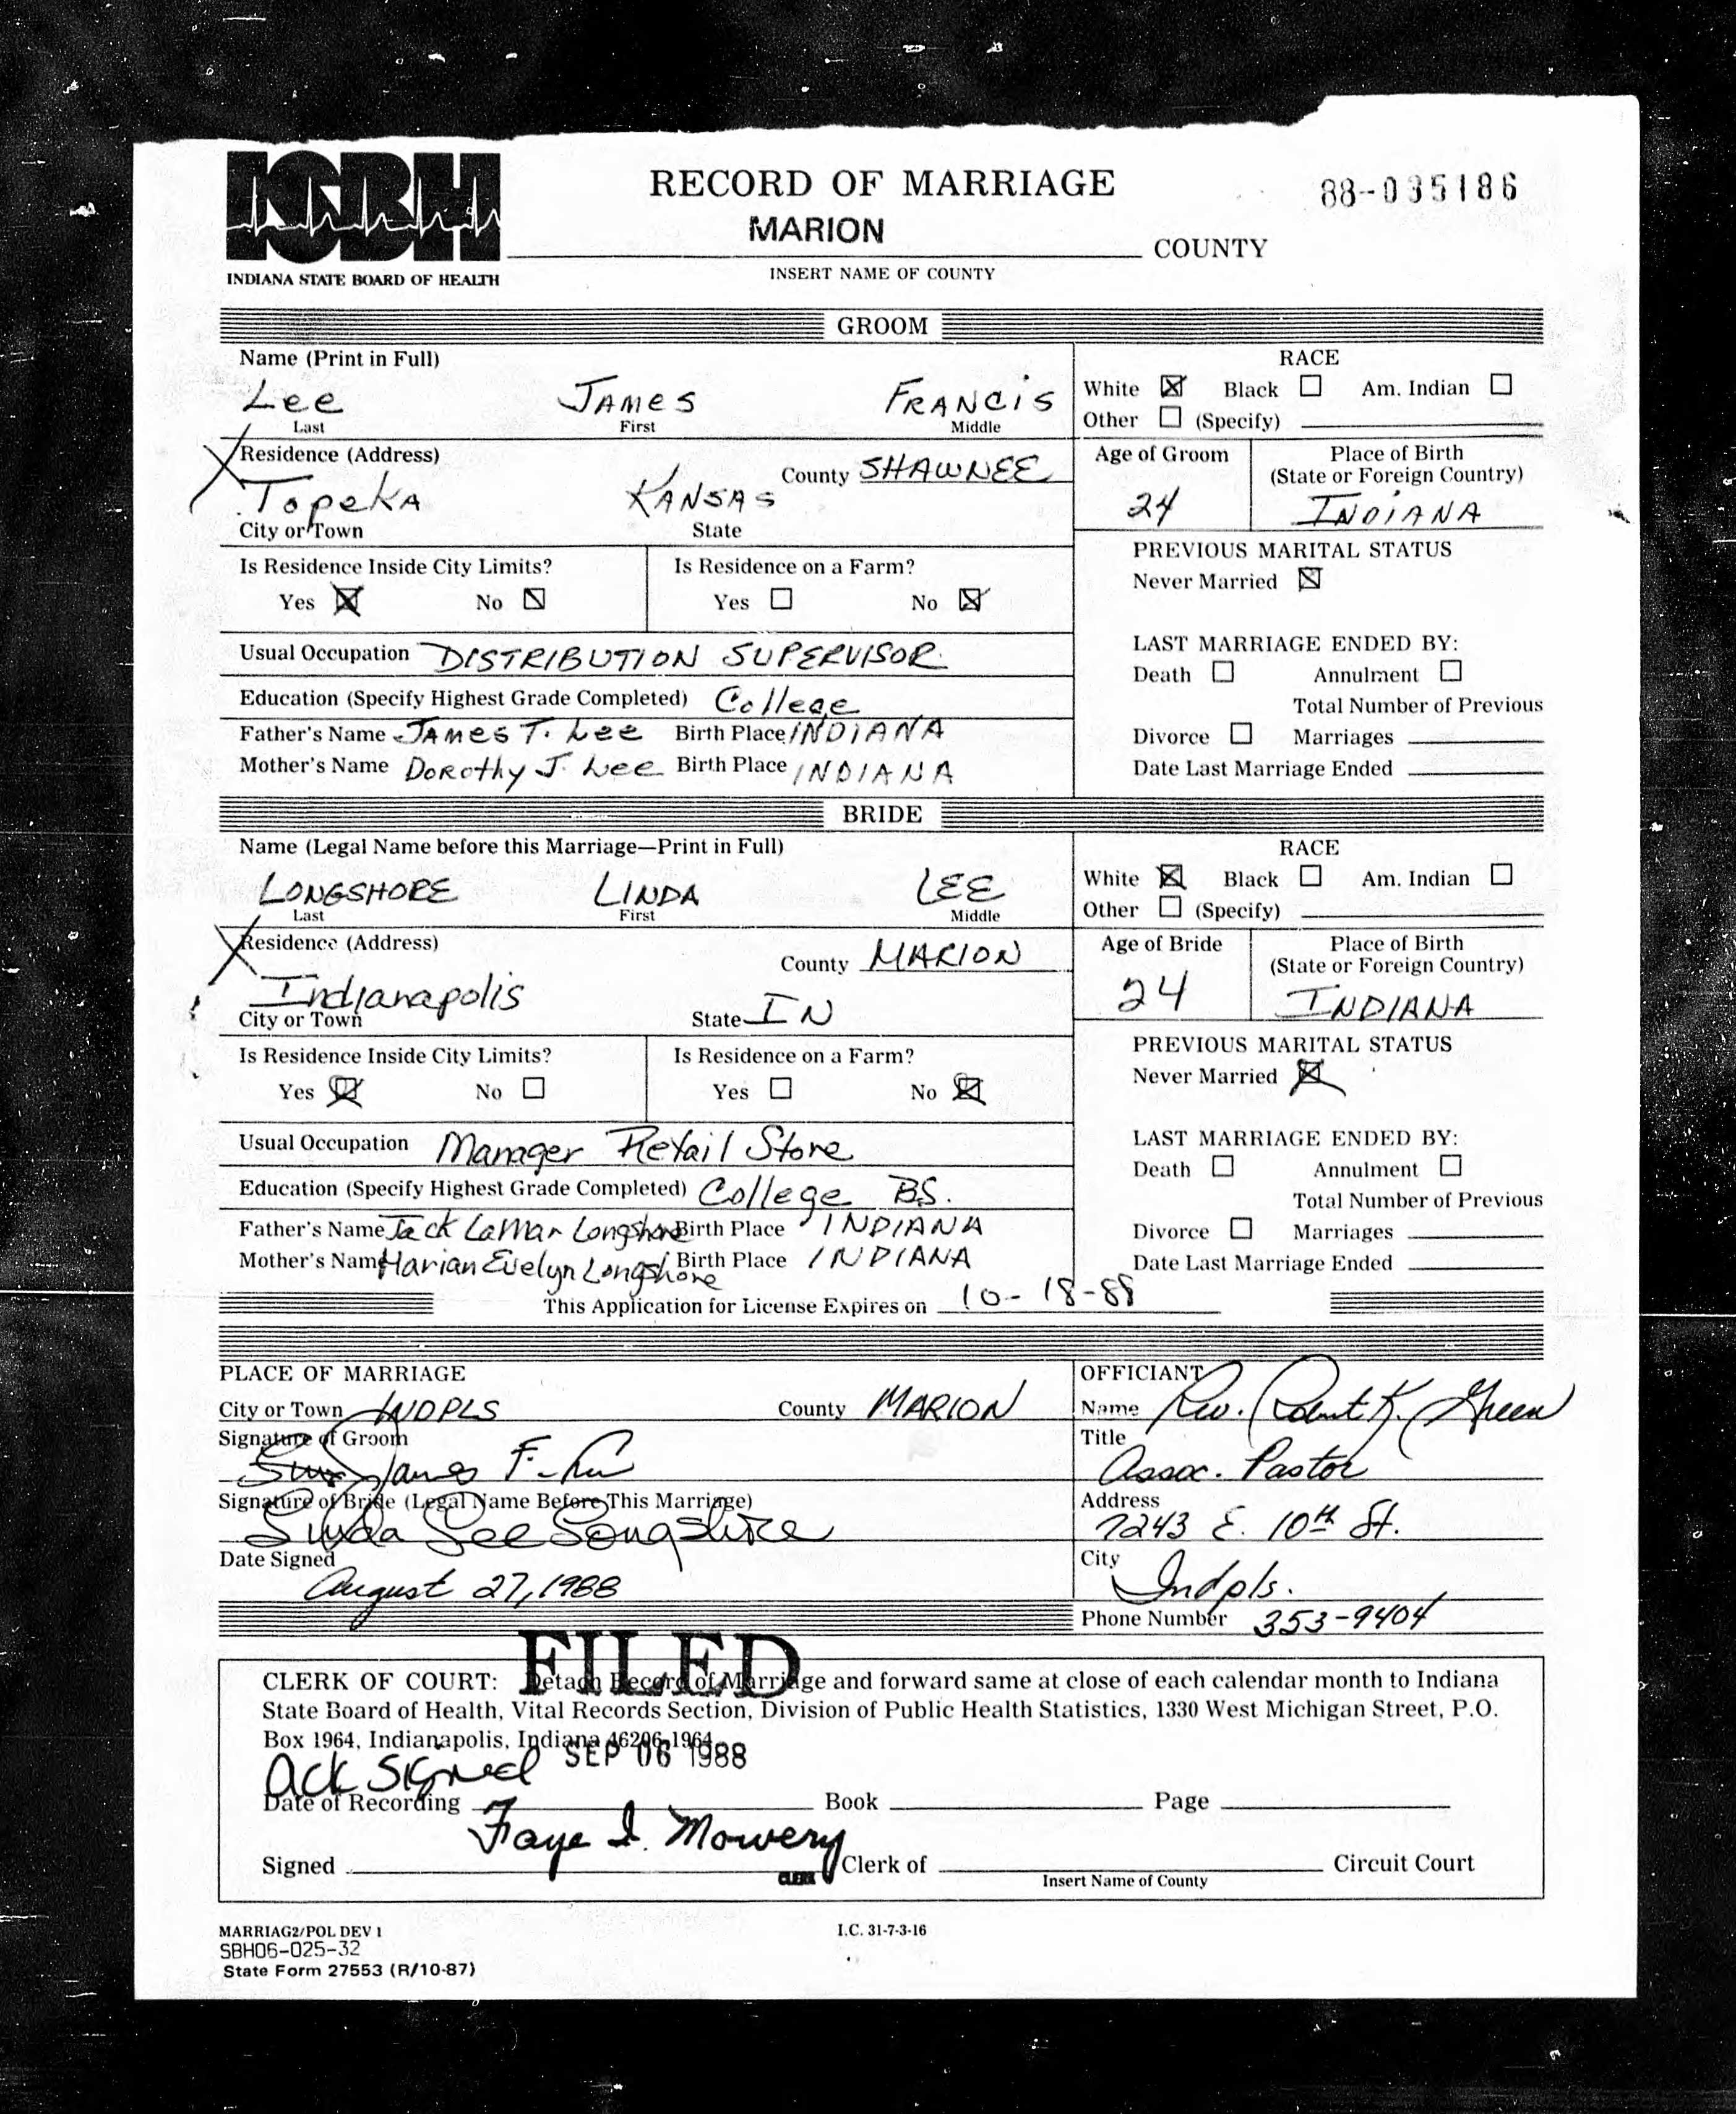 ISBH
INDIANA STATE BOARD OF HEALTH
RECORD OF MARRIAGE
88-035186
MARION COUNTY
INSERT NAME OF COUNTY
GROOM
Name (Print in Full)
Lee JAMES FRANCIS
Last First Middle
RACE
White ☒ Black ☐ Am. Indian ☐
Other ☐ (Specify)
Residence (Address)
County SHAWNEE
Topeka KANSAS
City or Town State
Age of Groom
24
Place of Birth
(State or Foreign Country)
INDIANA
Is Residence Inside City Limits?
Yes ☒ No ☒
Is Residence on a Farm?
Yes ☐ No ☒
PREVIOUS MARITAL STATUS
Never Married ☒
Usual Occupation DISTRIBUTION SUPERVISOR
Education (Specify Highest Grade Completed) College
Father's Name JAMES T. Lee Birth Place INDIANA
Mother's Name Dorothy J. Lee Birth Place INDIANA
LAST MARRIAGE ENDED BY:
Death ☐ Annulment ☐
Total Number of Previous
Divorce ☐ Marriages
Date Last Marriage Ended
BRIDE
Name (Legal Name before this Marriage—Print in Full)
LONGSHORE LINDA LEE
Last First Middle
RACE
White ☒ Black ☐ Am. Indian ☐
Other ☐ (Specify)
Residence (Address)
County MARION
Indianapolis
City or Town State IN
Age of Bride
24
Place of Birth
(State or Foreign Country)
INDIANA
Is Residence Inside City Limits?
Yes ☒ No ☐
Is Residence on a Farm?
Yes ☐ No ☒
PREVIOUS MARITAL STATUS
Never Married ☒
Usual Occupation Manager Retail Store
Education (Specify Highest Grade Completed) College B.S.
Father's Name Jack LaMar Longshore Birth Place INDIANA
Mother's Name Marian Evelyn Longshore Birth Place INDIANA
LAST MARRIAGE ENDED BY:
Death ☐ Annulment ☐
Total Number of Previous
Divorce ☐ Marriages
Date Last Marriage Ended
This Application for License Expires on 10-18-88
PLACE OF MARRIAGE
City or Town INDPLS County MARION
Signature of Groom
James F. Lee
Signature of Bride (Legal Name Before This Marriage)
Linda Lee Longshore
Date Signed
August 27, 1988
OFFICIANT
Name Rev. Robert K. Green
Title
Assoc. Pastor
Address
7243 E. 10th St.
City
Indpls.
Phone Number 353-9404
FILED
CLERK OF COURT: Detach Record of Marriage and forward same at close of each calendar month to Indiana
State Board of Health, Vital Records Section, Division of Public Health Statistics, 1330 West Michigan Street, P.O.
Box 1964, Indianapolis, Indiana 46206-1964.
SEP 06 1988
Ack Signed
Date of Recording Book Page
Faye I. Mowery
Signed CLERK Clerk of Circuit Court
Insert Name of County
MARRIAG2/POL DEV 1
SBH06-025-32
State Form 27553 (R/10-87)
I.C. 31-7-3-16